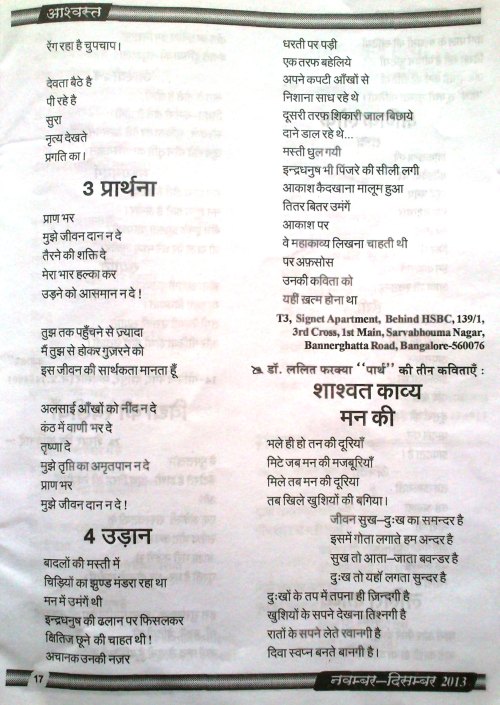 आश्वस्त
रेंग रहा है चुपचाप।
देवता बैठे है
पी रहे है
सुरा
नृत्य देखते
प्रगति का।
3 प्रार्थना
प्राण भर
मुझे जीवन दान न दे
तैरने की शक्ति दे
मेरा भार हल्का कर
उड़ने को आसमान न दे !
तुझ तक पहुँचने से ज़्यादा
मैं तुझ से होकर गुज़रने को
इस जीवन की सार्थकता मानता हूँ
अलसाई आँखों को नींद न दे
कंठ में वाणी भर दे
तृष्णा दे
मुझे तृप्ति का अमृतपान न दे
प्राण भर
मुझे जीवन दान न दे !
4 उड़ान
बादलों की मस्ती में
चिड़ियों का झुण्ड मंडरा रहा था
मन में उमंगें थी
इन्द्रधनुष की ढलान पर फिसलकर
क्षितिज छूने की चाहत थी !
अचानक उनकी नज़र
धरती पर पड़ी
एक तरफ बहेलिये
अपने कपटी आँखों से
निशाना साध रहे थे
दूसरी तरफ शिकारी जाल बिछाये
दाने डाल रहे थे...
मस्ती घुल गयी
इन्द्रधनुष भी पिंजरे की सीली लगी
आकाश कैदखाना मालूम हुआ
तितर बितर उमंगें
आकाश पर
वे महाकाव्य लिखना चाहती थी
पर अफ़सोस
उनकी कविता को
यहीं ख़त्म होना था
T3, Signet Apartment, Behind HSBC, 139/1,
3rd Cross, 1st Main, Sarvabhouma Nagar,
Bannerghatta Road, Bangalore-560076
डॉ. ललित फरक्या ‘‘पार्थ’’ की तीन कविताएँ :
शाश्वत काव्य
मन की
भले ही हो तन की दूरियाँ
मिटे जब मन की मजबूरियाँ
मिले तब मन की दूरिया
तब खिले खुशियों की बगिया।
जीवन सुख–दुःख का समन्दर है
इसमें गोता लगाते हम अन्दर है
सुख तो आता–जाता बवन्डर है
दुःख तो यहाँ लगता सुन्दर है
दुःखों के तप में तपना ही ज़िन्दगी है
खुशियों के सपने देखना तिश्नगी है
रातों के सपने लेते रवानगी है
दिवा स्वप्न बनते बानगी है।
17
नवम्बर–दिसम्बर 2013